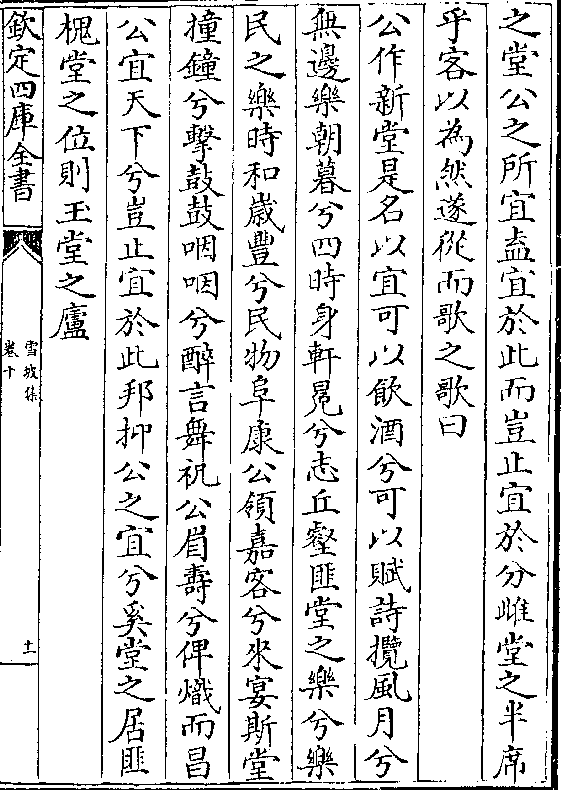 之堂公之所宜盍宜於此而豈止宜於分雎堂之半席
乎客以為然遂從而歌之歌曰
公作新堂是名以宜可以飲酒兮可以賦詩攬風月兮
無邊樂朝暮兮四時身軒冕兮志丘壑匪堂之樂兮樂
民之樂時和歳豐兮民物阜康公領嘉客兮来宴斯堂
撞鐘兮擊鼓鼓咽咽兮醉言舞祝公眉壽兮俾熾而昌
公宜天下兮豈止宜於此邦抑公之宜兮奚堂之居匪
槐堂之位則玉堂之廬
欽定四庫全書
雪坡集
卷十
十一